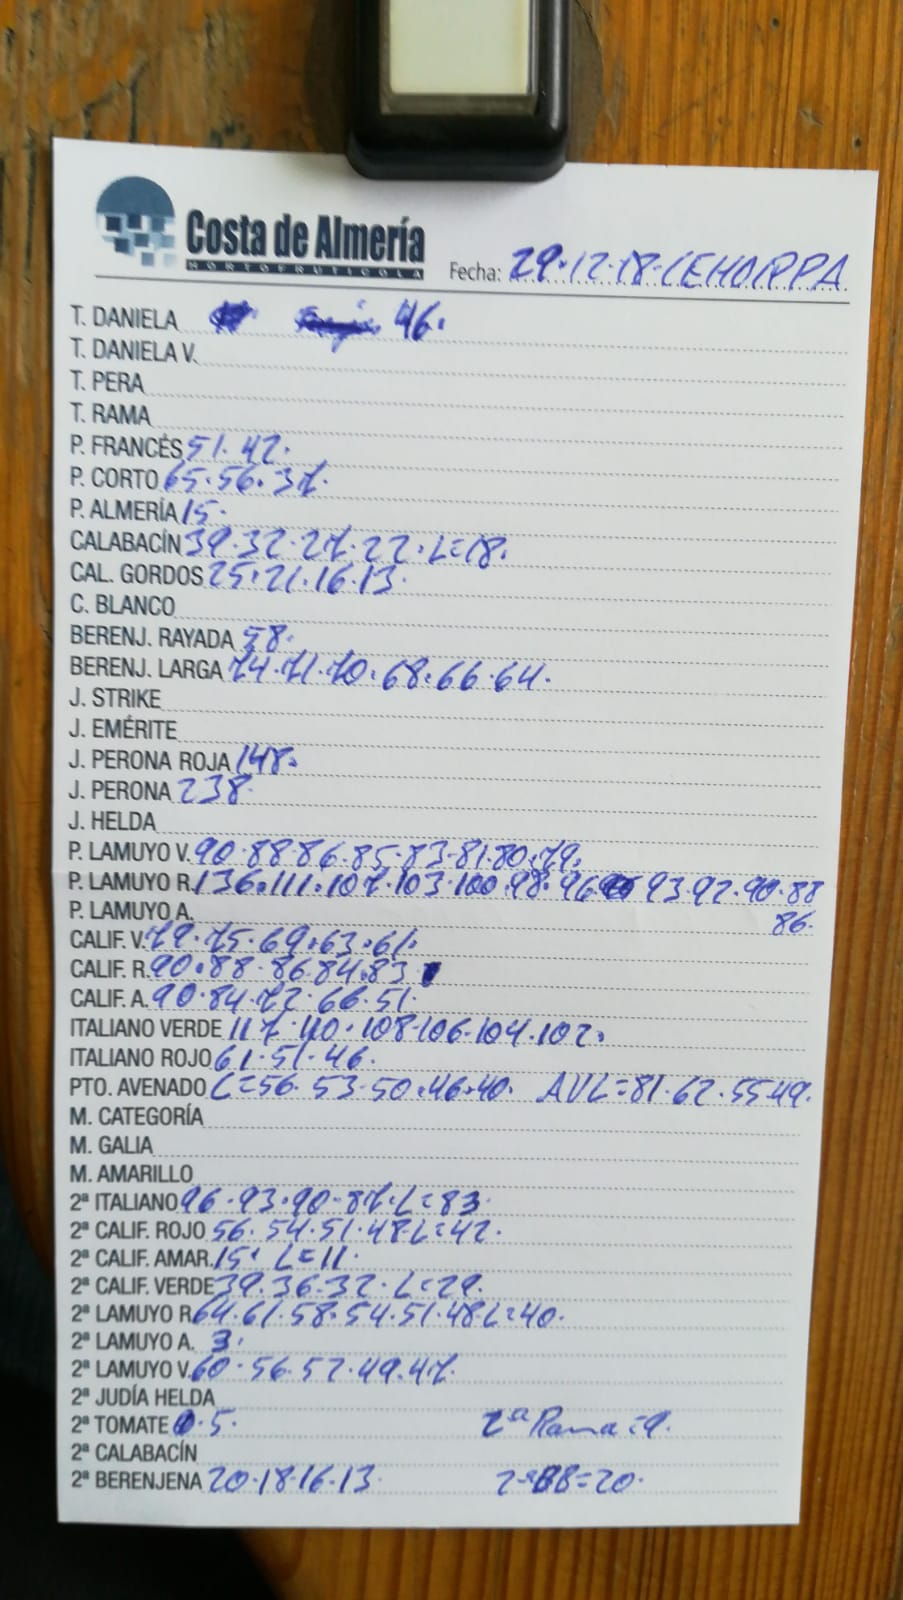 Costa de Almería
HORTOFRUTICOLA
Fecha: 29.12.18. CEHORPPA
T. DANIELA 46.
T. DANIELA V.
T. PERA
T. RAMA
P. FRANCÉS 51. 42.
P. CORTO 65. 56. 37.
P. ALMERÍA 15.
CALABACÍN 39. 32. 27. 22. L=18.
CAL. GORDOS 25. 21. 16. 13.
C. BLANCO
BERENJ. RAYADA 58.
BERENJ. LARGA 74. 71. 70. 68. 66. 64.
J. STRIKE
J. EMÉRITE
J. PERONA ROJA 148.
J. PERONA 238.
J. HELDA
P. LAMUYO V. 90. 88. 86. 85. 83. 81. 80. 79.
P. LAMUYO R. 136. 111. 107. 103. 100. 98. 96. 93. 92. 90. 88
P. LAMUYO A. 86.
CALIF. V. 79. 75. 69. 63. 61.
CALIF. R. 90. 88. 86. 84. 83
CALIF. A. 90. 84. 72. 66. 51.
ITALIANO VERDE 117. 110. 108. 106. 104. 102.
ITALIANO ROJO 61. 51. 46.
PTO. AVENADO L=56. 53. 50. 46. 40. AVL=81. 62. 55. 49.
M. CATEGORÍA
M. GALIA
M. AMARILLO
2ª ITALIANO 96. 93. 90. 87. L=83
2ª CALIF. ROJO 56. 54. 51. 48. L=42.
2ª CALIF. AMAR. 15. L=11.
2ª CALIF. VERDE 39. 36. 32. L=29.
2ª LAMUYO R. 64. 61. 58. 54. 51. 48. L=40.
2ª LAMUYO A. 3.
2ª LAMUYO V. 60. 56. 52. 49. 47.
2ª JUDÍA HELDA
2ª TOMATE 5. 2ª Rama=9.
2ª CALABACÍN
2ª BERENJENA 20. 18. 16. 13. 2ªBB=20.